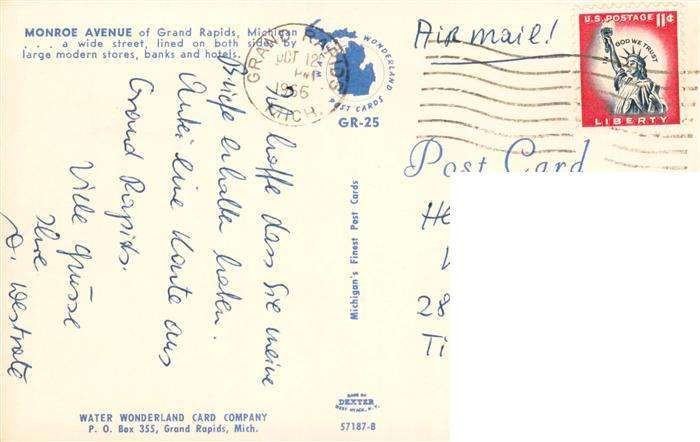 MONROE AVENUE of Grand Rapids, Michigan
. . . a wide street, lined on both sides by
large modern stores, banks and hotels.
GRAND RAPIDS
OCT 12
PM
1966
MICH.
WATER WONDERLAND
POST CARDS
GR-25
Air mail!
U.S. POSTAGE 11¢
IN GOD WE TRUST
LIBERTY
Post Card
Ich hoffe dass Sie meine
Briefe erhalten haben.
eine Karte aus
Grand Rapids.
Viele Grüsse
Ihre
D. Westrate
Michigan's Finest Post Cards
He
28
Ti
MADE BY
DEXTER
WEST NYACK, N.Y.
57187-B
WATER WONDERLAND CARD COMPANY
P. O. Box 355, Grand Rapids, Mich.